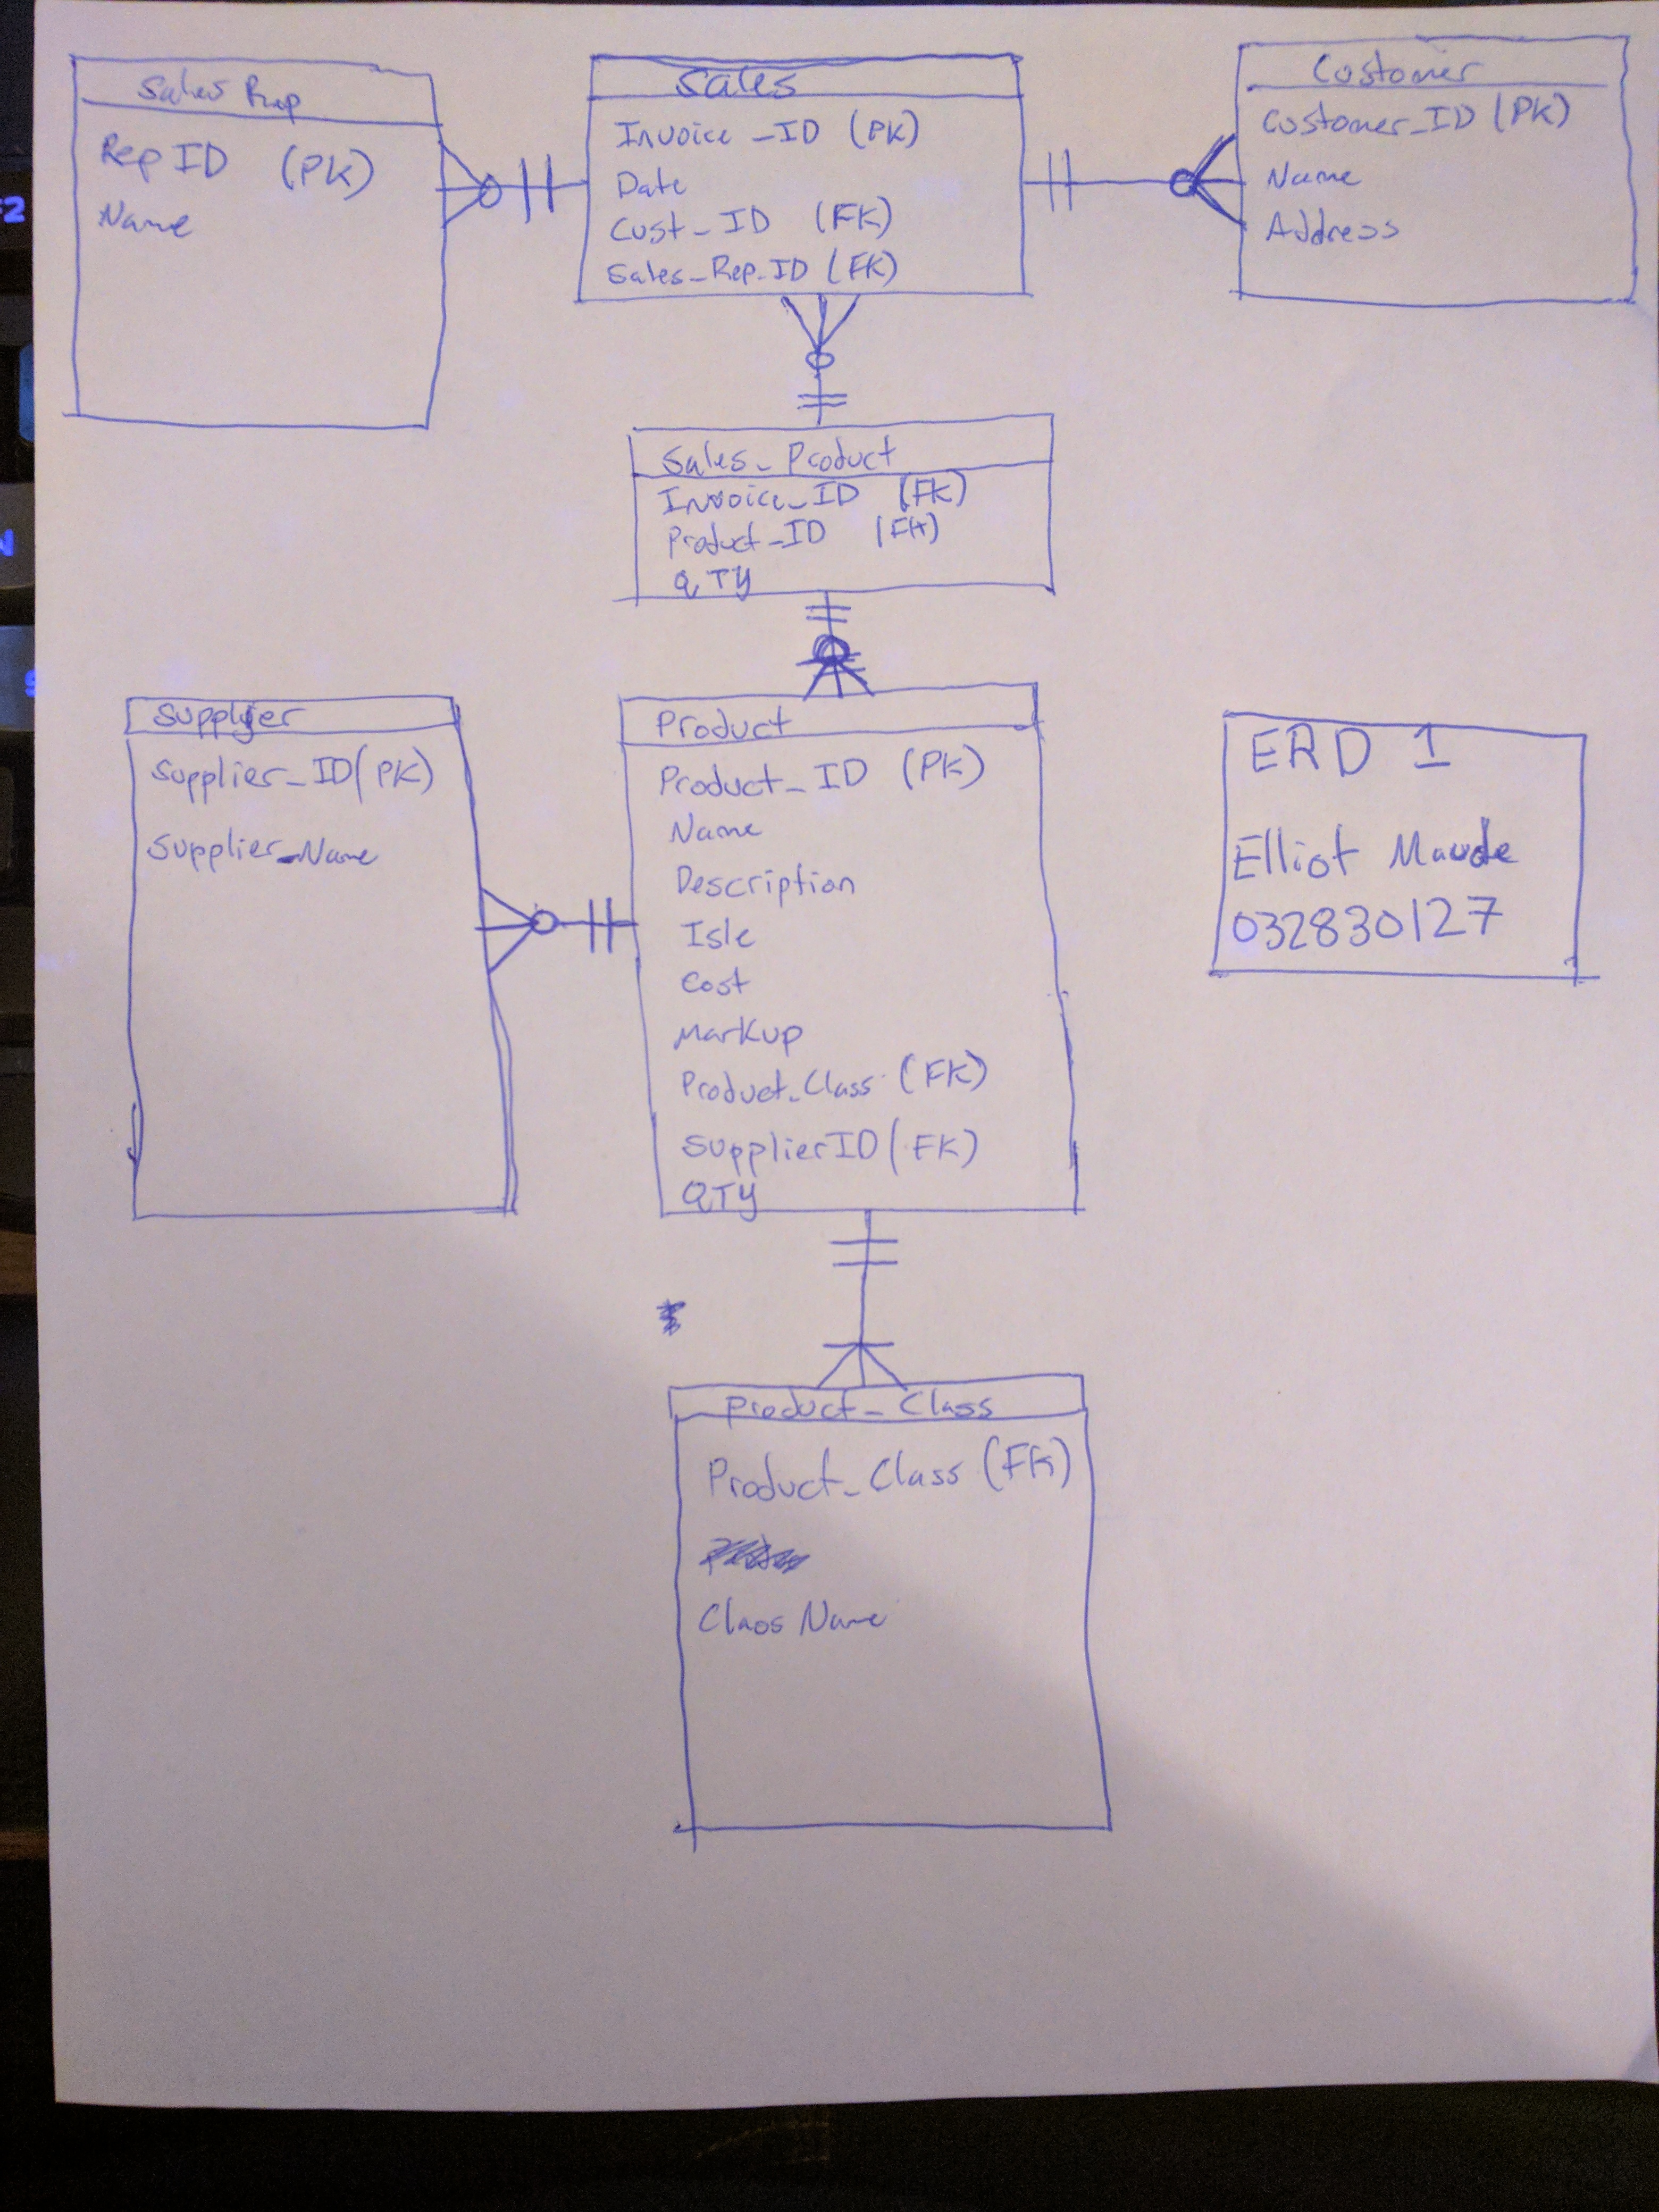 Sales Rep
Rep ID (PK)
Name
Sales
Invoice_ID (PK)
Date
Cust_ID (FK)
Sales_Rep_ID (FK)
Customer
Customer_ID (PK)
Name
Address
Sales_Product
Invoice_ID (FK)
Product_ID (FK)
QTY
Supplyer
Supplier_ID (PK)
Supplier_Name
Product
Product_ID (PK)
Name
Description
Isle
Cost
Markup
Product_Class (FK)
SupplierID (FK)
QTY
ERD 1
Elliot Maude
032830127
Product_Class
Product_Class (FK)
Class Name